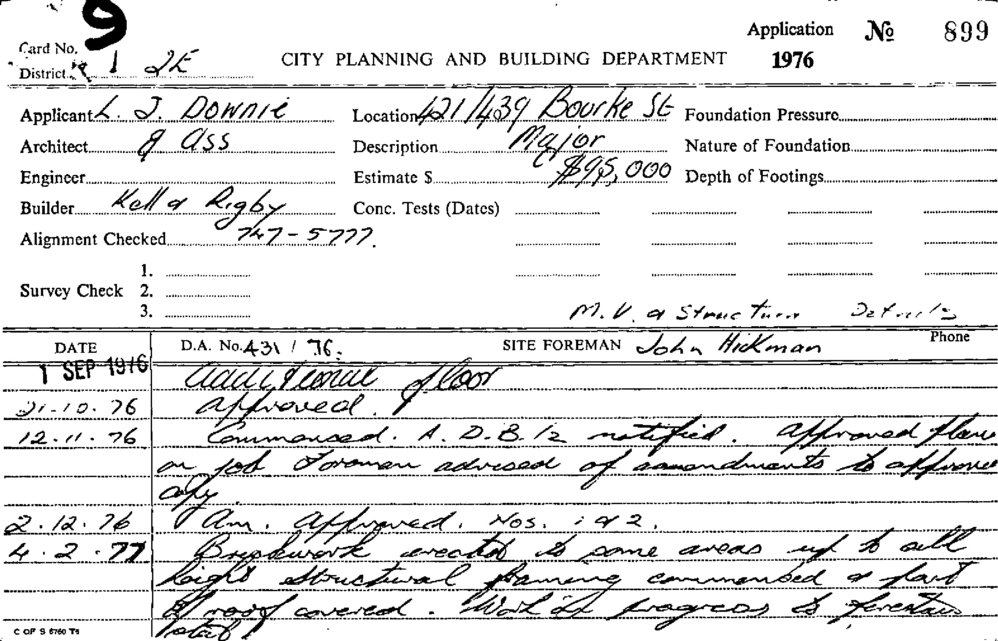 9
Application No 899
Card No.
District 1 2E
CITY PLANNING AND BUILDING DEPARTMENT 1976
Applicant L. J. Downie Location 421/439 Bourke St Foundation Pressure
Architect & Ass Description Major Nature of Foundation
Engineer Estimate $ $95,000 Depth of Footings
Builder Kell & Rigby Conc. Tests (Dates)
Alignment Checked 747-5777.
1.
Survey Check 2.
3.
M.V. & Structural Details
DATE D.A. No. 431 / 76. SITE FOREMAN John Hickman Phone
1 SEP 1976 Additional floor
21.10.76 Approved.
12.11.76 Commenced. A.D.B. 12 notified. Approved plans
on job Foreman advised of amendments to approved
copy.
2.12.76 Am. Approved. Nos. 1 & 2.
4.2.77 Brickwork erected to some areas up to sill
height structural framing commenced & part
of roof covered. Work in progress to
C OF S 6760 T5